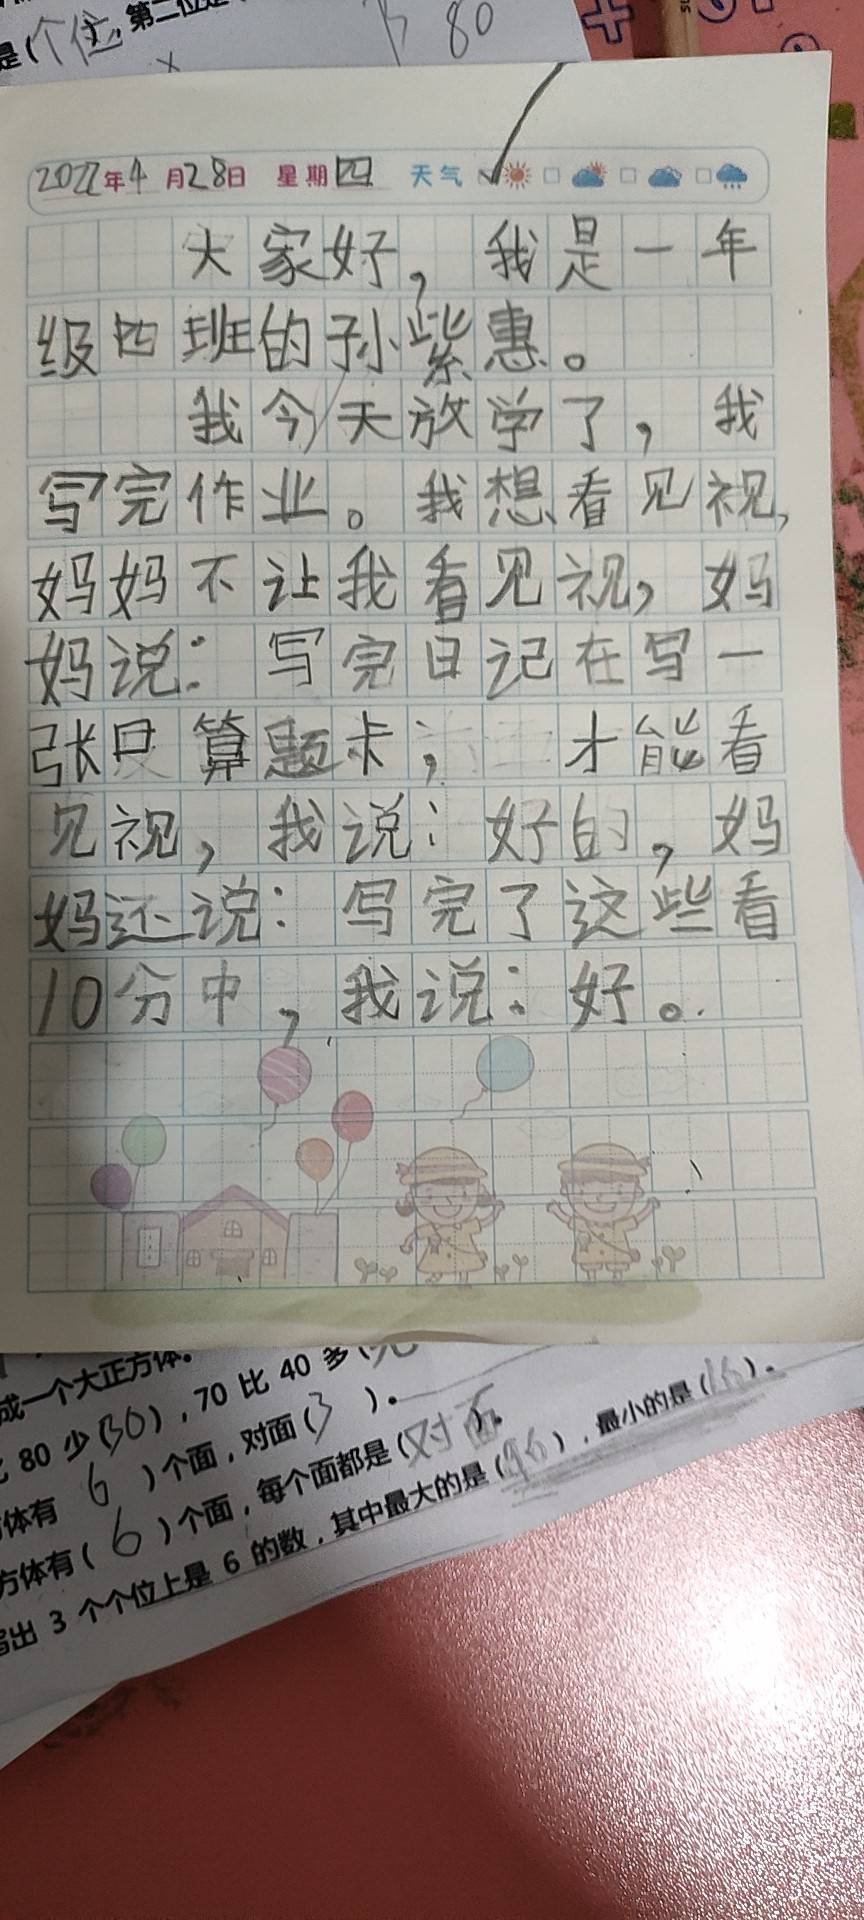 是(个位,第二位是
80
2022年4月28日 星期四 天气
大家好,我是一年
级四班的孙紫惠。
我今天放学了,我
写完作业。我想看见视,
妈妈不让我看见视,妈
妈说:写完日记在写一
张口算题卡;才能看
见视,我说:好的,妈
妈还说:写完了这些看
10分中,我说:好。
成一个大正方体。
80少(30),70比40多(
体有 6 )个面,对面(3 )。
方体有( 6 )个面,每个面都是(对面)。
出3个个位上是6的数,其中最大的是(96),最小的是(16)。